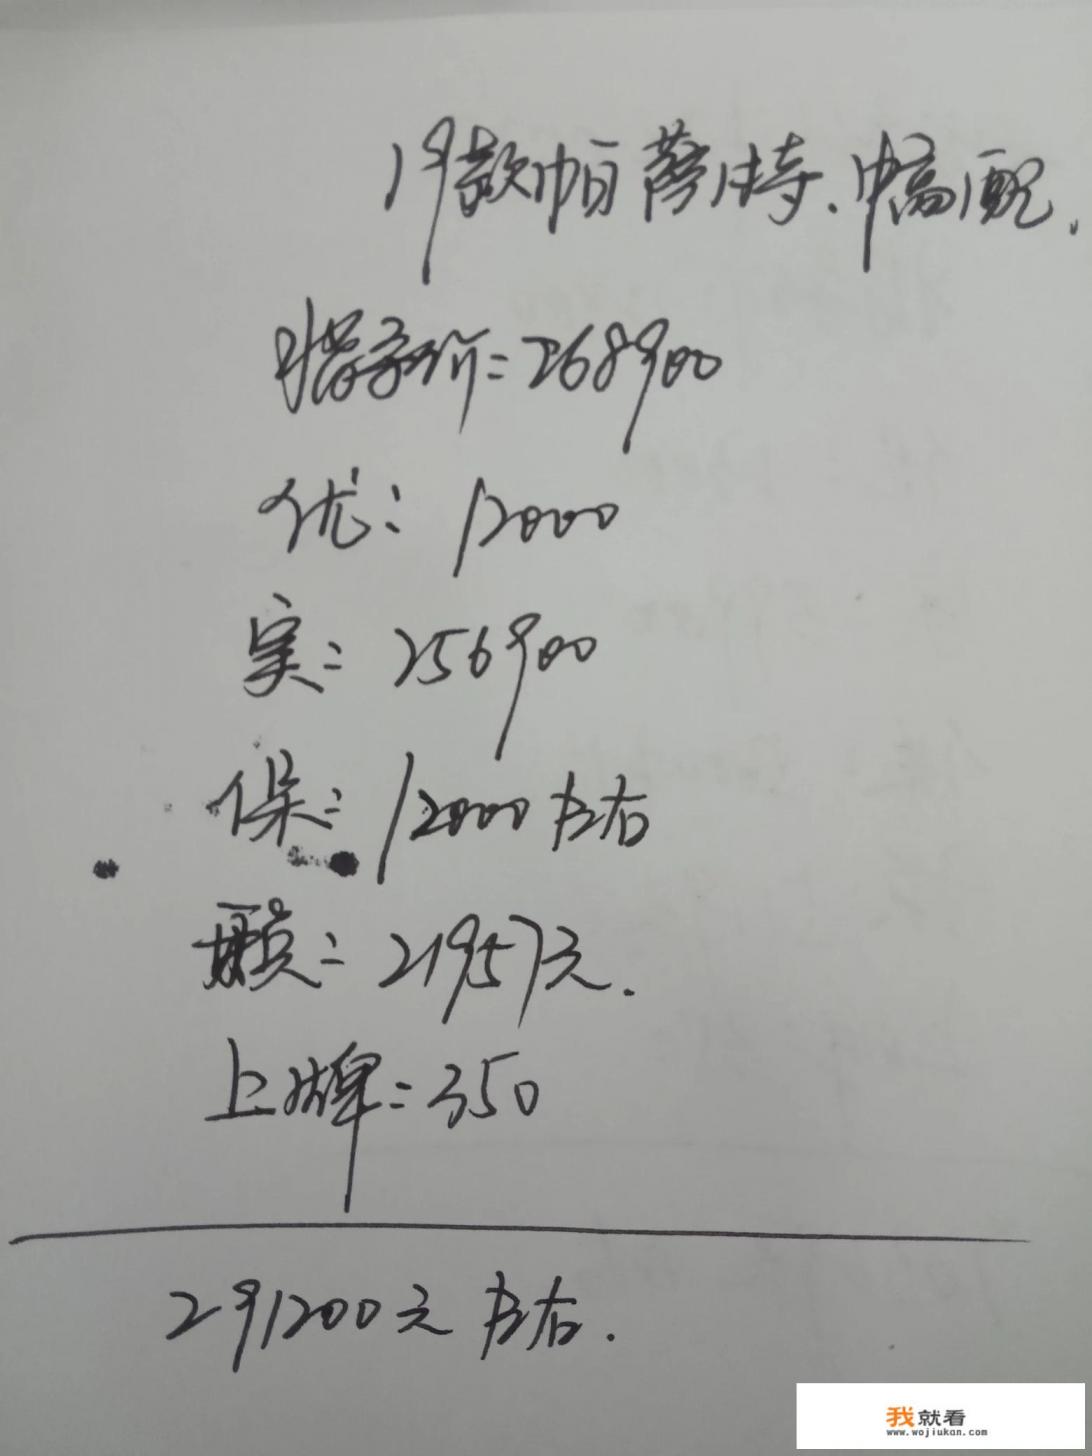 19款帕萨特.中高配.
指导价=268900
优: 12000
实: 256900
保: 12000左右
购: 21957元.
上牌: 350
291200元左右.
我就看
www.wojiukan.com